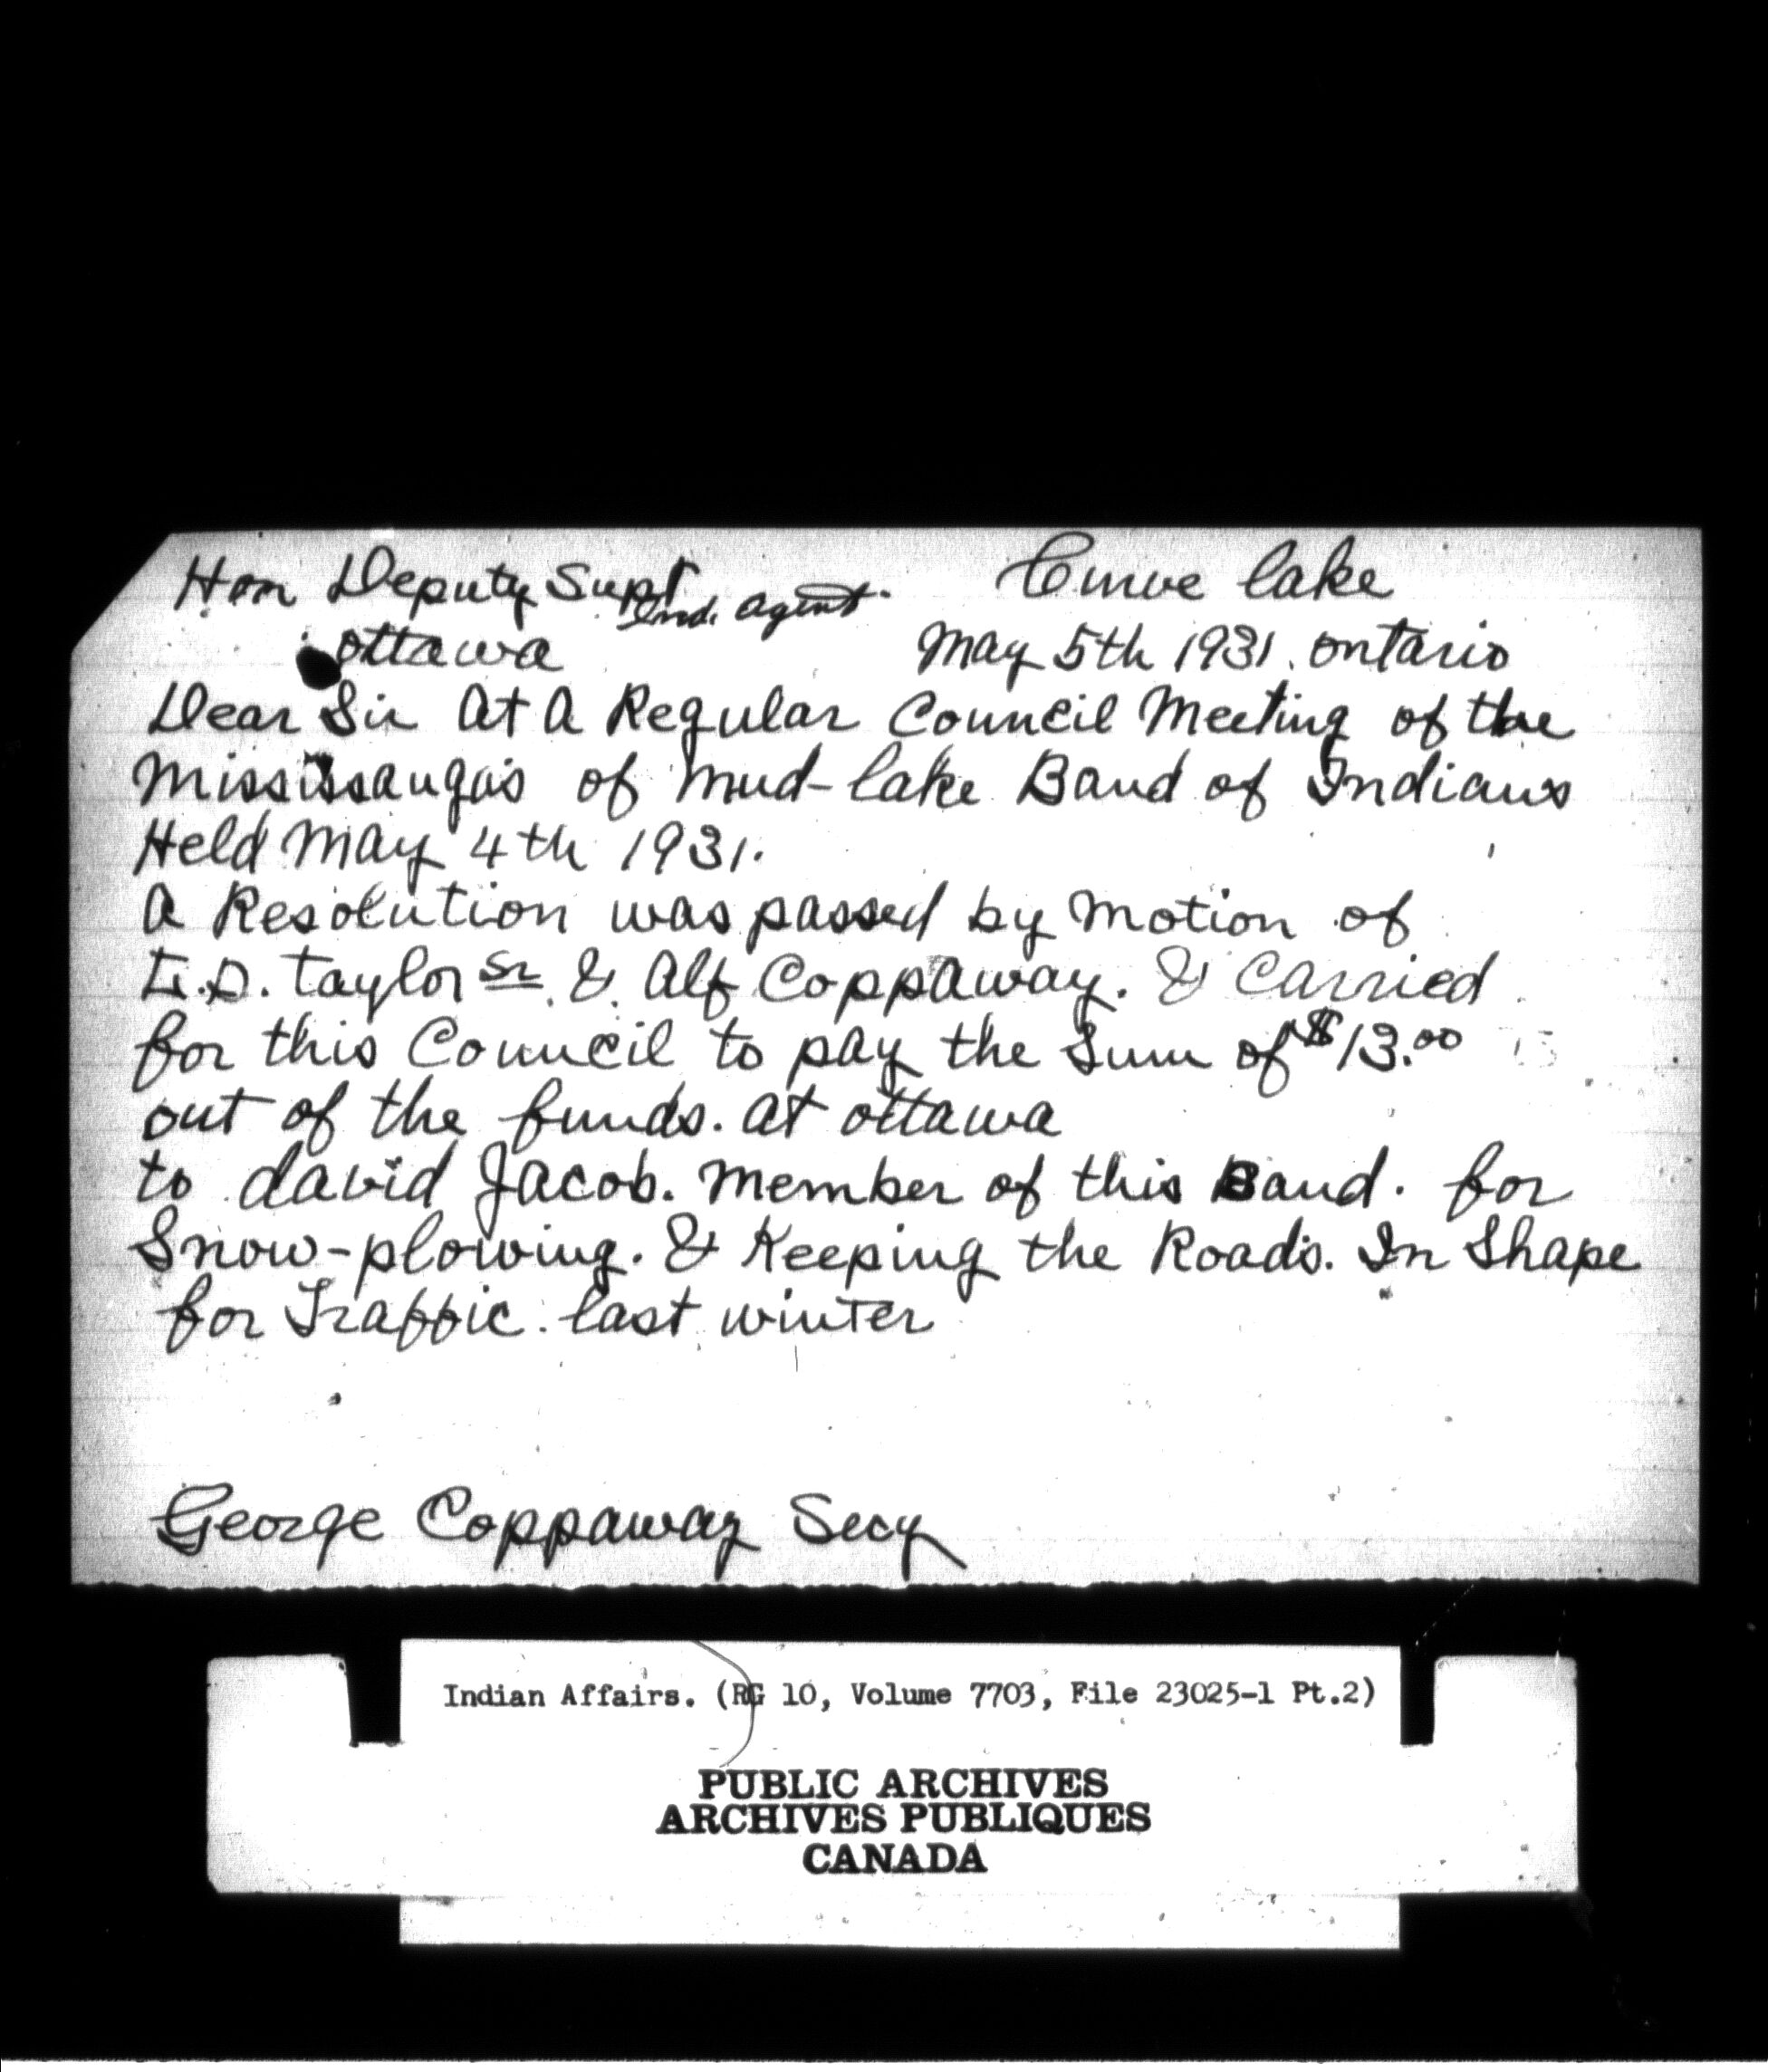 Hon Deputy Supt Ind. Agent. Curve lake
Ottawa May 5th 1931. Ontario
Dear Sir At A Regular Council Meeting of the
Mississauga's of Mud-lake Band of Indians
Held May 4th 1931.
A Resolution was passed by Motion of
D. Taylor Sr. & Alf Coppaway. & Carried
for this Council to pay the Sum of $13.00
out of the funds. at Ottawa
to david Jacob. Member of this Band. for
Snow-plowing. & Keeping the Road's. In Shape
for Traffic. last winter
George Coppaway Secy
Indian Affairs. (RG 10, Volume 7703, File 23025-1 Pt.2)
PUBLIC ARCHIVES
ARCHIVES PUBLIQUES
CANADA